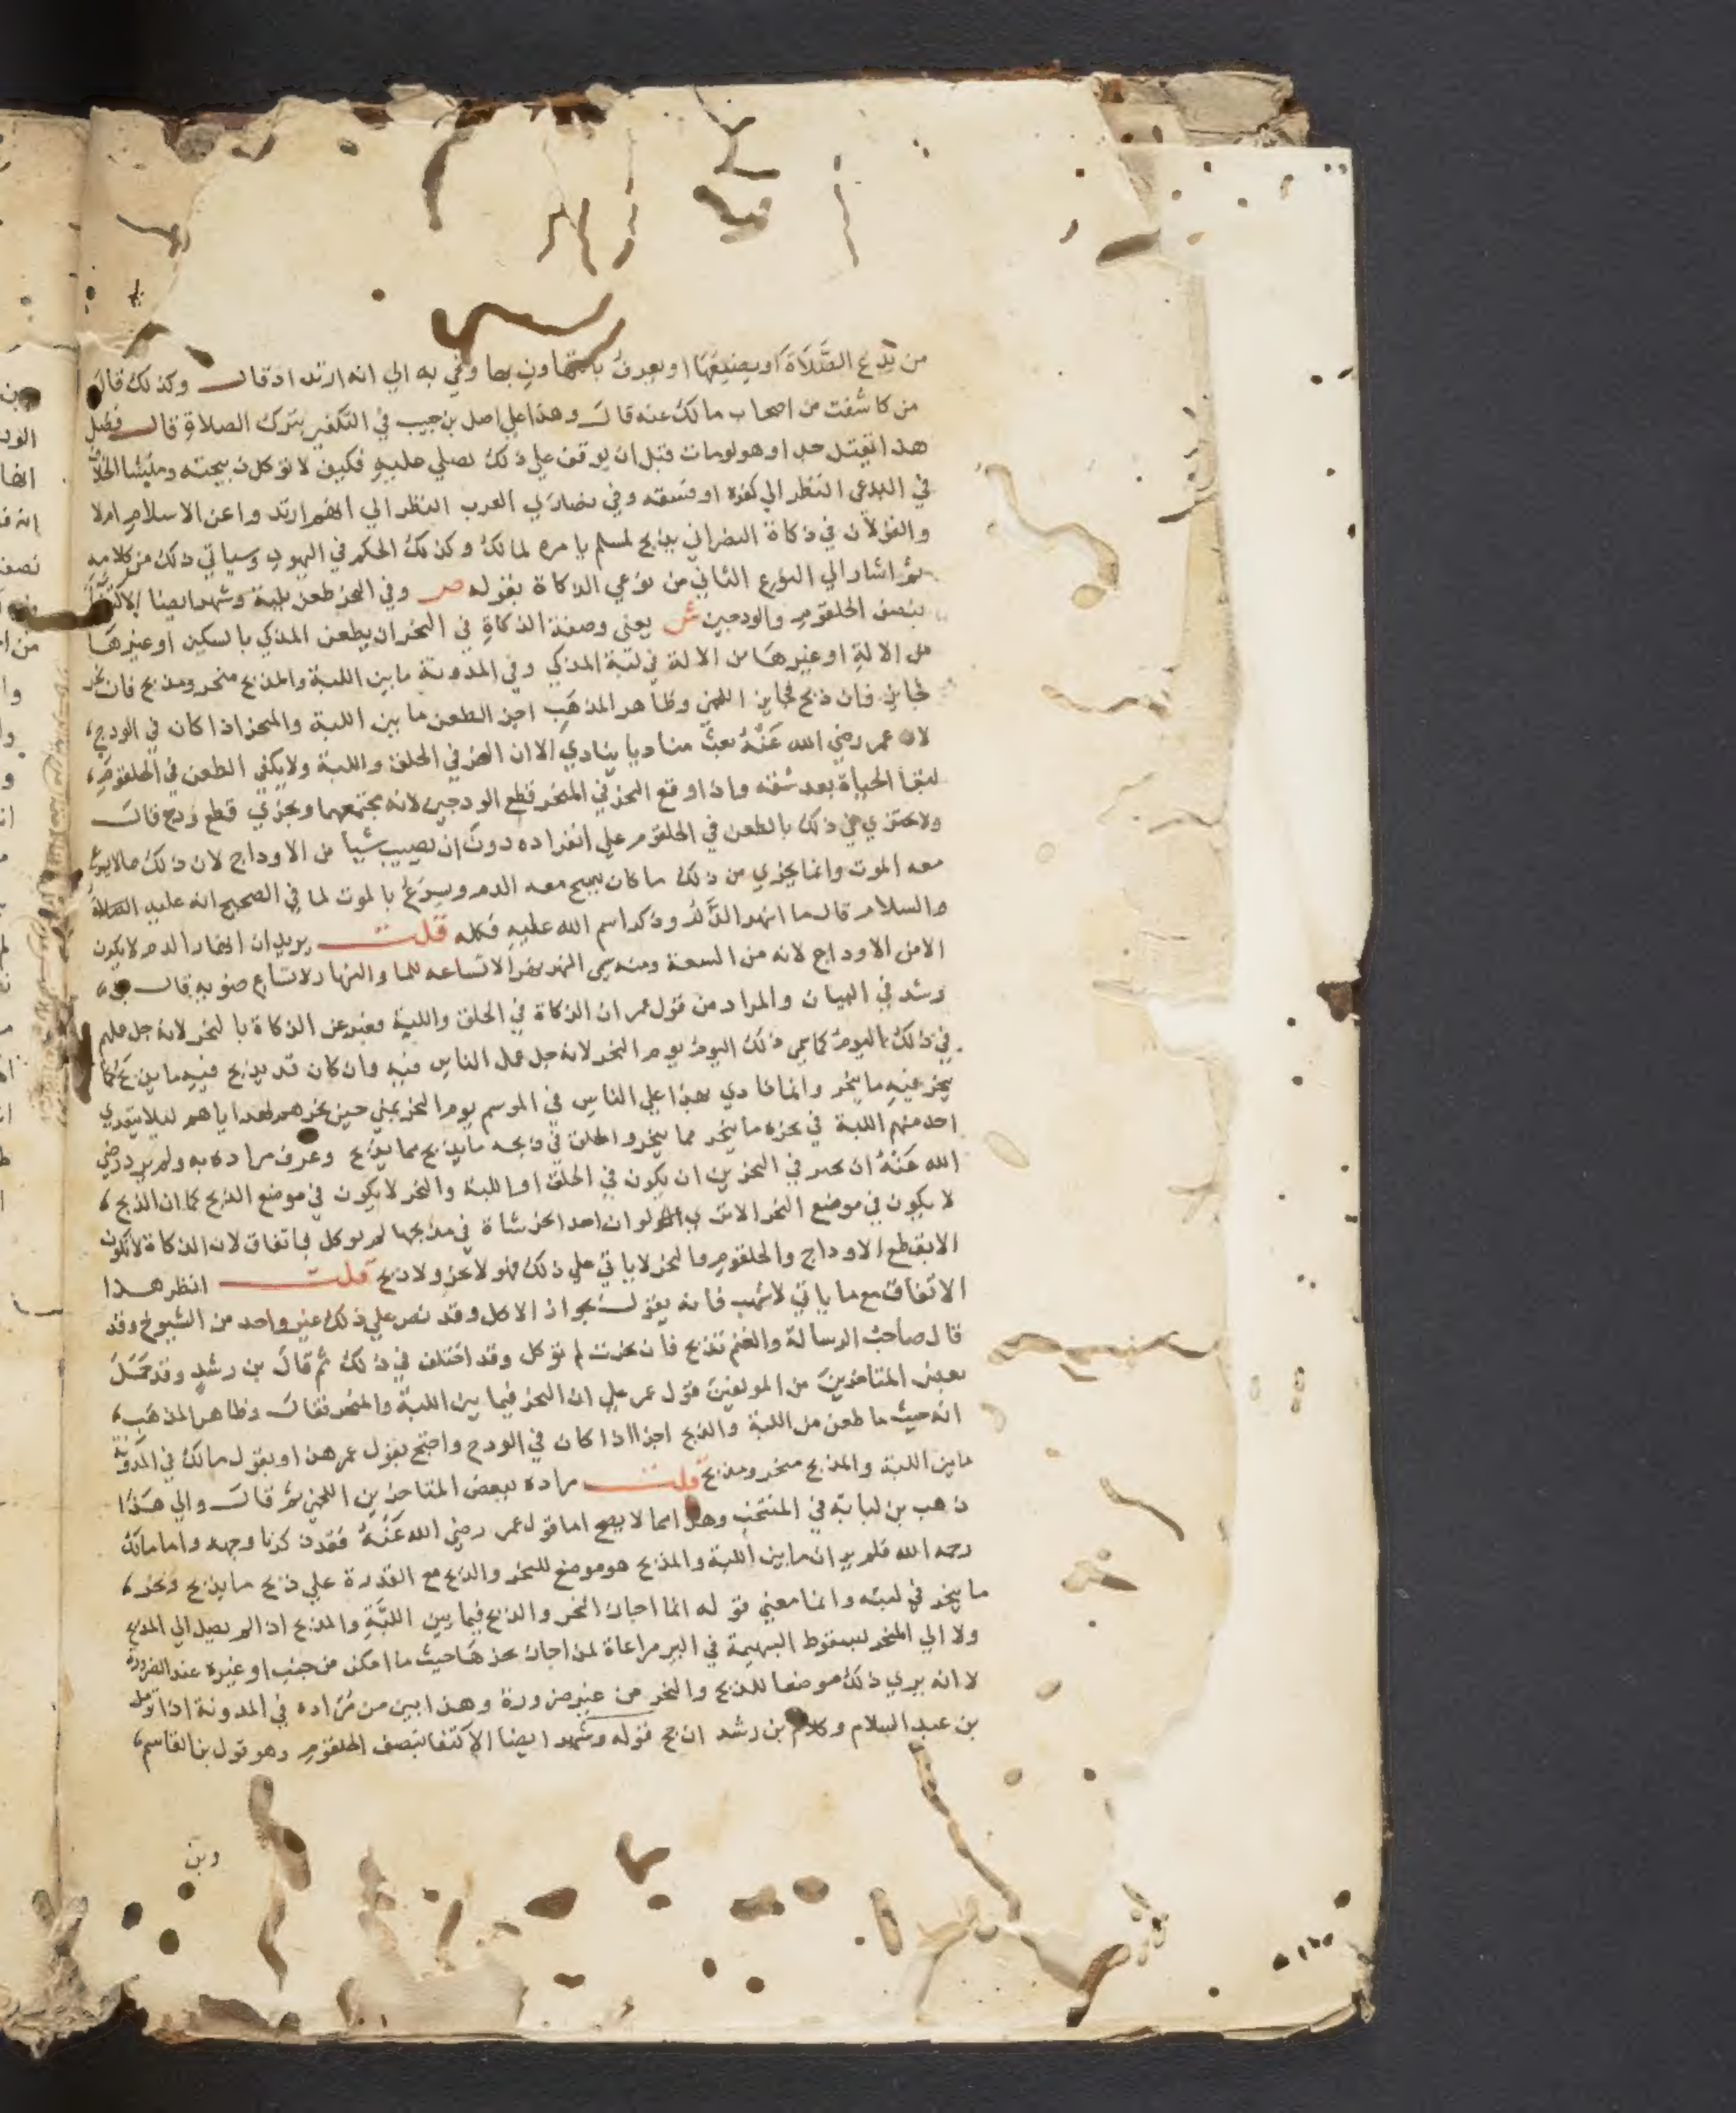 من يدع الصَّلَاةَ او يضيعُهَا او يعرفُ بالتهاون بها وفي به الي انه ارتد اذ قال وكذلك قال
من كاشفت من اصحاب مالك عنه قال وهذا علي اصل بن حبيب في التكفير بترك الصلاة قال فضل
هذا يقتل حدا وهو لو مات قبل ان يوقف علي ذلك لصلي عليه فكيف لا توكل ذبيحته ومثيل الخلاف
في البدعي النظر الي كفره او فسقه وفي نصاري العرب النظر الي انهم ارتدوا عن الاسلام ام لا
والقولان في ذكاة النصراني يذبح لمسلم يامره لمالك وكذلك الحكم في اليهود وسياتي ذلك من كلامه
ثم اشار الي النوع الثاني من نوعي الذكاة بقوله ص وفي النحر طعن بلبة وشهر ايضا الاكتفا
بنصف الحلقوم والودجين ش يعني وصفة الذكاةِ في النحر ان يطعن المذكي بالسكين او غيرهَا
من الالةِ او غيرهَا من الالة في لبة المذكي وفي المدونة ما بين اللبة والمذبح منحر ومذبح فان نحر
فجايز فان ذبح فجايز اللخمي وظاهر المذهَب اجزا الطعن ما بين اللبة والمنحر اذا كان في الودج
لان عمر رضي الله عَنْهُ بعث مناديا ينادي الا ان النحر في الحلق واللبة ولا يكفي الطعن في الحلقوم
لبقا الحياة بعد شقه واذا وقع النحر في المنحر قطع الودجين لانه مجتمعهما ويجزي قطع ودج قال
ولا يجتزي في ذلك بالطعن في الحلقوم علي انفراده دون ان يصيب شيا من الاوداج لان ذلك مما لا يسرع
معه الموت وانما يجزي من ذلك ما كان يبيح معه الدم ويسرع بالموت لما في الصحيح انه عليه الصلاة
والسلام قال ما انهر الدَّم وذكر اسم الله عليهِ فكله قلت يريد ان انهار الدم لا يكون
الا من الاوداج لانه من السعة ومنه سمي النهر نهرا لاتساعه للما والنهار لاتساع ضوبه قال بن
رشد في البيان والمراد من قول عمر ان الذكاة في الحلق واللبة فعبر عن الذكاة بالنحر لانه جل عملهم
في ذلك اليوم كما سمي ذلك اليوم يوم النحر لانه جل عمل الناس فيه وان كان قد يذبح فيهِ ما يذبح كما
ينحر فيهِ ما ينحر وانما نادي بهذا علي الناس في الموسم يوم النحر بمني حين نحرهم لهداياهم ليلا يتعدي
احد منهم اللبة في نحره ما ينحر مما ينحر والحلق في ذبحه ما يذبح مما يذبح وعرف مراده به ولم يرد رضي
الله عَنْهُ ان نخير في النحر بين ان يكون في الحلق او اللبة والنحر لا يكون في موضع الذبح كما ان الذبح
لا يكون في موضع النحر الا تري انه لو ان احدا نحر شاة في مذبحها لم توكل باتفاق لان الذكاة لا تكون
الا بقطع الاوداج والحلقوم والنحر لا ياتي علي ذلك فهو لا نحر ولا ذبح قلت انظر هذا
الاتفاق مع ما ياتي لاشهب فانه يقول بجواز الاكل وقد نص علي ذلك غير واحد من الشيوخ وقد
قال صاحب الرسالة والغنم تذبح فان نحرت لم توكل وقد اختلف في ذلك ثم قال بن رشدٍ وقد حَمَلَ
بعض المتاخرين من المولفين قول عمر علي ان النحر فيما بين اللبة والمنحر فقال وظاهر المذهَب
انه حيث ما طعن من اللبة والذبح اجزا اذا كان في الودج واحتج بقول عمر هذا وبقول مالك في المدونة
ما بين اللبة والمذبح منحر ومذبح قلت مراده ببعض المتاخرين اللخمي ثم قال والي هَذَا
ذهب بن لبابة في المنتخب وهذا مما لا يصح اما قول عمر رضي الله عَنْهُ فقد ذكرنا وجهه واما مالك
رحمه الله فلم ير ان ما بين اللبة والمذبح هو موضع للنحر والذبح مع القدرة علي ذبح ما يذبح ونحر
ما ينحر في لبته وانما معني قوله انما اجاز النحر والذبح فيما بين اللبَّةِ والمذبح اذا لم يصل الي المذبح
ولا الي المنحر لسقوط البهيمة في البير مراعاة لمن اجاز نحرهَا حيث ما امكن من جنب او غيره عند الضرورة
لا انه يري ذلك موضعا للذبح والنحر من غير ضرورة وهذا ابين من مراده في المدونة اذا تومل
بن عبد السلام وكلام بن رشد ارجح قوله وشهر ايضا الاكتفا بنصف الحلقوم وهو قول بن القاسم
وبن